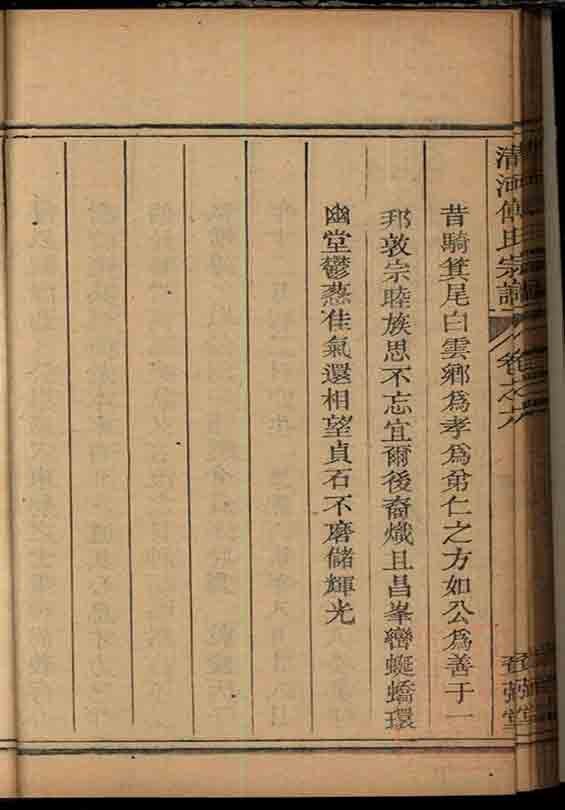 清河傅氏宗譜
卷之六
昔騎箕尾白雲鄉爲孝爲弟仁之方如公爲善于一
邦敦宗睦族思不忘宜爾後裔熾且昌峯巒蜒蟜環
幽堂鬱葱佳氣還相望貞石不磨儲輝光